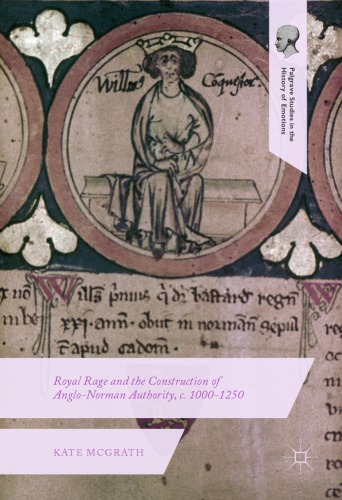 Palgrave Studies in the
History of Emotions
Will̅s p̅mus q̅ dr̅ bastard regn̅
xxi. ann̅. obut in norman̅ sepul
apud cadom̅.
Royal Rage and the Construction of
Anglo-Norman Authority, c. 1000-1250
KATE MCGRATH